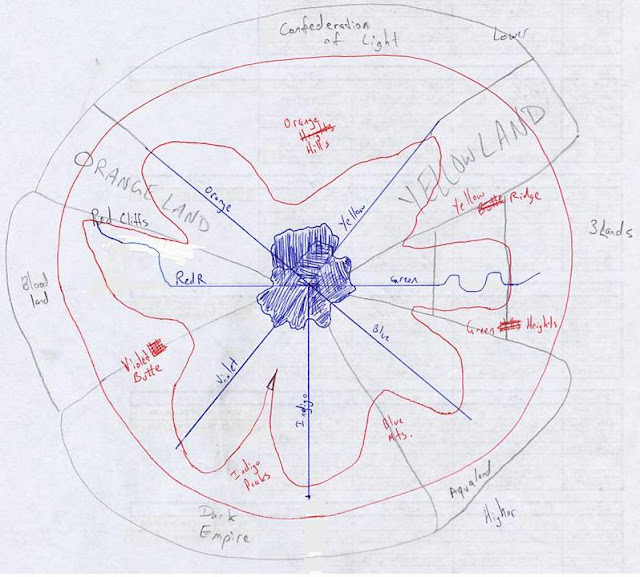 Confederation
of Light
Lower
Orange
Heights
Hills
ORANGE LAND
YELLOWLAND
Orange
Yellow
Yellow Butte Ridge
Red Cliffs
3 Lands
Red R
Green
Blood
land
Blue
Green Heights
Violet
Butte
Violet
Indigo
Blue
Mts.
Indigo
Peaks
Aqualand
Higher
Dark
Empire